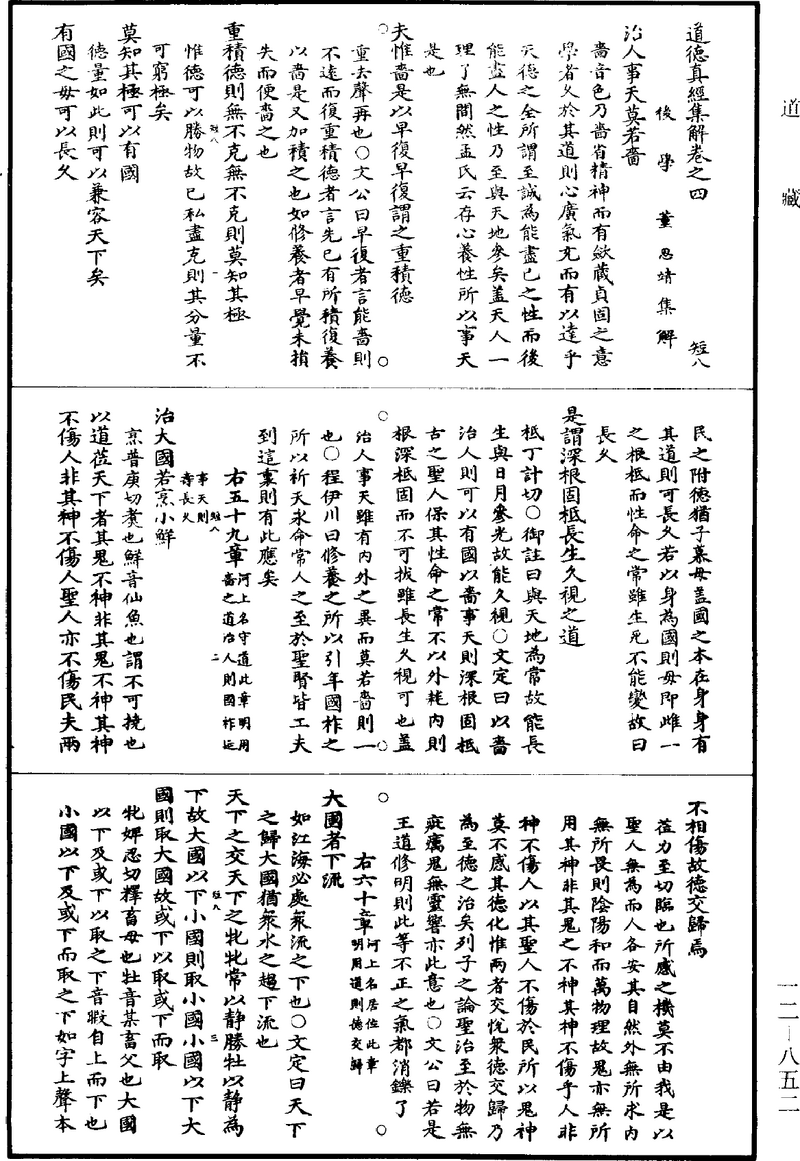 道藏
道德真經集解卷之四
短八
後學董思靖集解
治人事天莫若嗇
嗇音色乃嗇省精神而有斂藏貞固之意
學者久於其道則心廣氣充而有以達乎
天德之全所謂至誠為能盡己之性而後
能盡人之性乃至與天地參矣蓋天人一
理了無間然孟氏云存心養性所以事天
是也
夫惟嗇是以早復早復謂之重積德
重去聲再也○文公曰早復者言能嗇則
不遠而復重積德者言先已有所積復養
以嗇是又加積之也如修養者早覺未損
失而便嗇之也
重積德則無不克無不克則莫知其極
惟德可以勝物故已私盡克則其分量不
可窮極矣
莫知其極可以有國
德量如此則可以兼容天下矣
有國之母可以長久
短八
一
民之附德猶子慕母蓋國之本在身身有
其道則可長久若以身為國則母即雌一
之根柢而性命之常雖生死不能變故曰
長久
是謂深根固柢長生久視之道
柢丁計切○御註曰與天地為常故能長
生與日月參光故能久視○文定曰以嗇
治人則可以有國以嗇事天則深根固柢
古之聖人保其性命之常不以外耗內則
根深柢固而不可拔雖長生久視可也蓋
治人事天雖有內外之異而莫若嗇則一
也○程伊川曰修養之所以引年國祚之
所以祈天永命常人之至於聖賢皆工夫
到這裏則有此應矣
右五十九章河上名守道此章明用
嗇之道治人則國祚延
事天則
壽長久
短八
二
治大國若烹小鮮
烹普庚切煮也鮮音仙魚也謂不可撓也
以道莅天下者其鬼不神非其鬼不神其神
不傷人非其神不傷人聖人亦不傷民夫兩
不相傷故德交歸焉
莅力至切臨也所感之機莫不由我是以
聖人無為而人各安其自然外無所求內
無所畏則陰陽和而萬物理故鬼亦無所
用其神非其鬼之不神其神不傷乎人非
神不傷人以其聖人不傷於民所以鬼神
莫不感其德化惟兩者交悅眾德交歸乃
為至德之治矣列子之論聖治至於物無
疵癘鬼無靈響亦此意也○文公曰若是
王道修明則此等不正之氣都消鑠了
右六十章河上名居位此章
明用道則德交歸
大國者下流
如江海必處眾流之下也○文定曰天下
之歸大國猶眾水之趨下流也
天下之交天下之牝牝常以靜勝牡以靜為
下故大國以下小國則取小國小國以下大
國則取大國故或下以取或下而取
短九
三
牝婢忍切釋畜母也牡音某畜父也大國
以下及或下以取之下音暇自上而下也
小國以下及或下而取之下如字上聲本
一二—八五二